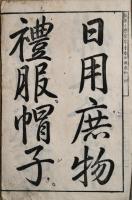 日用庶物
禮服帽子